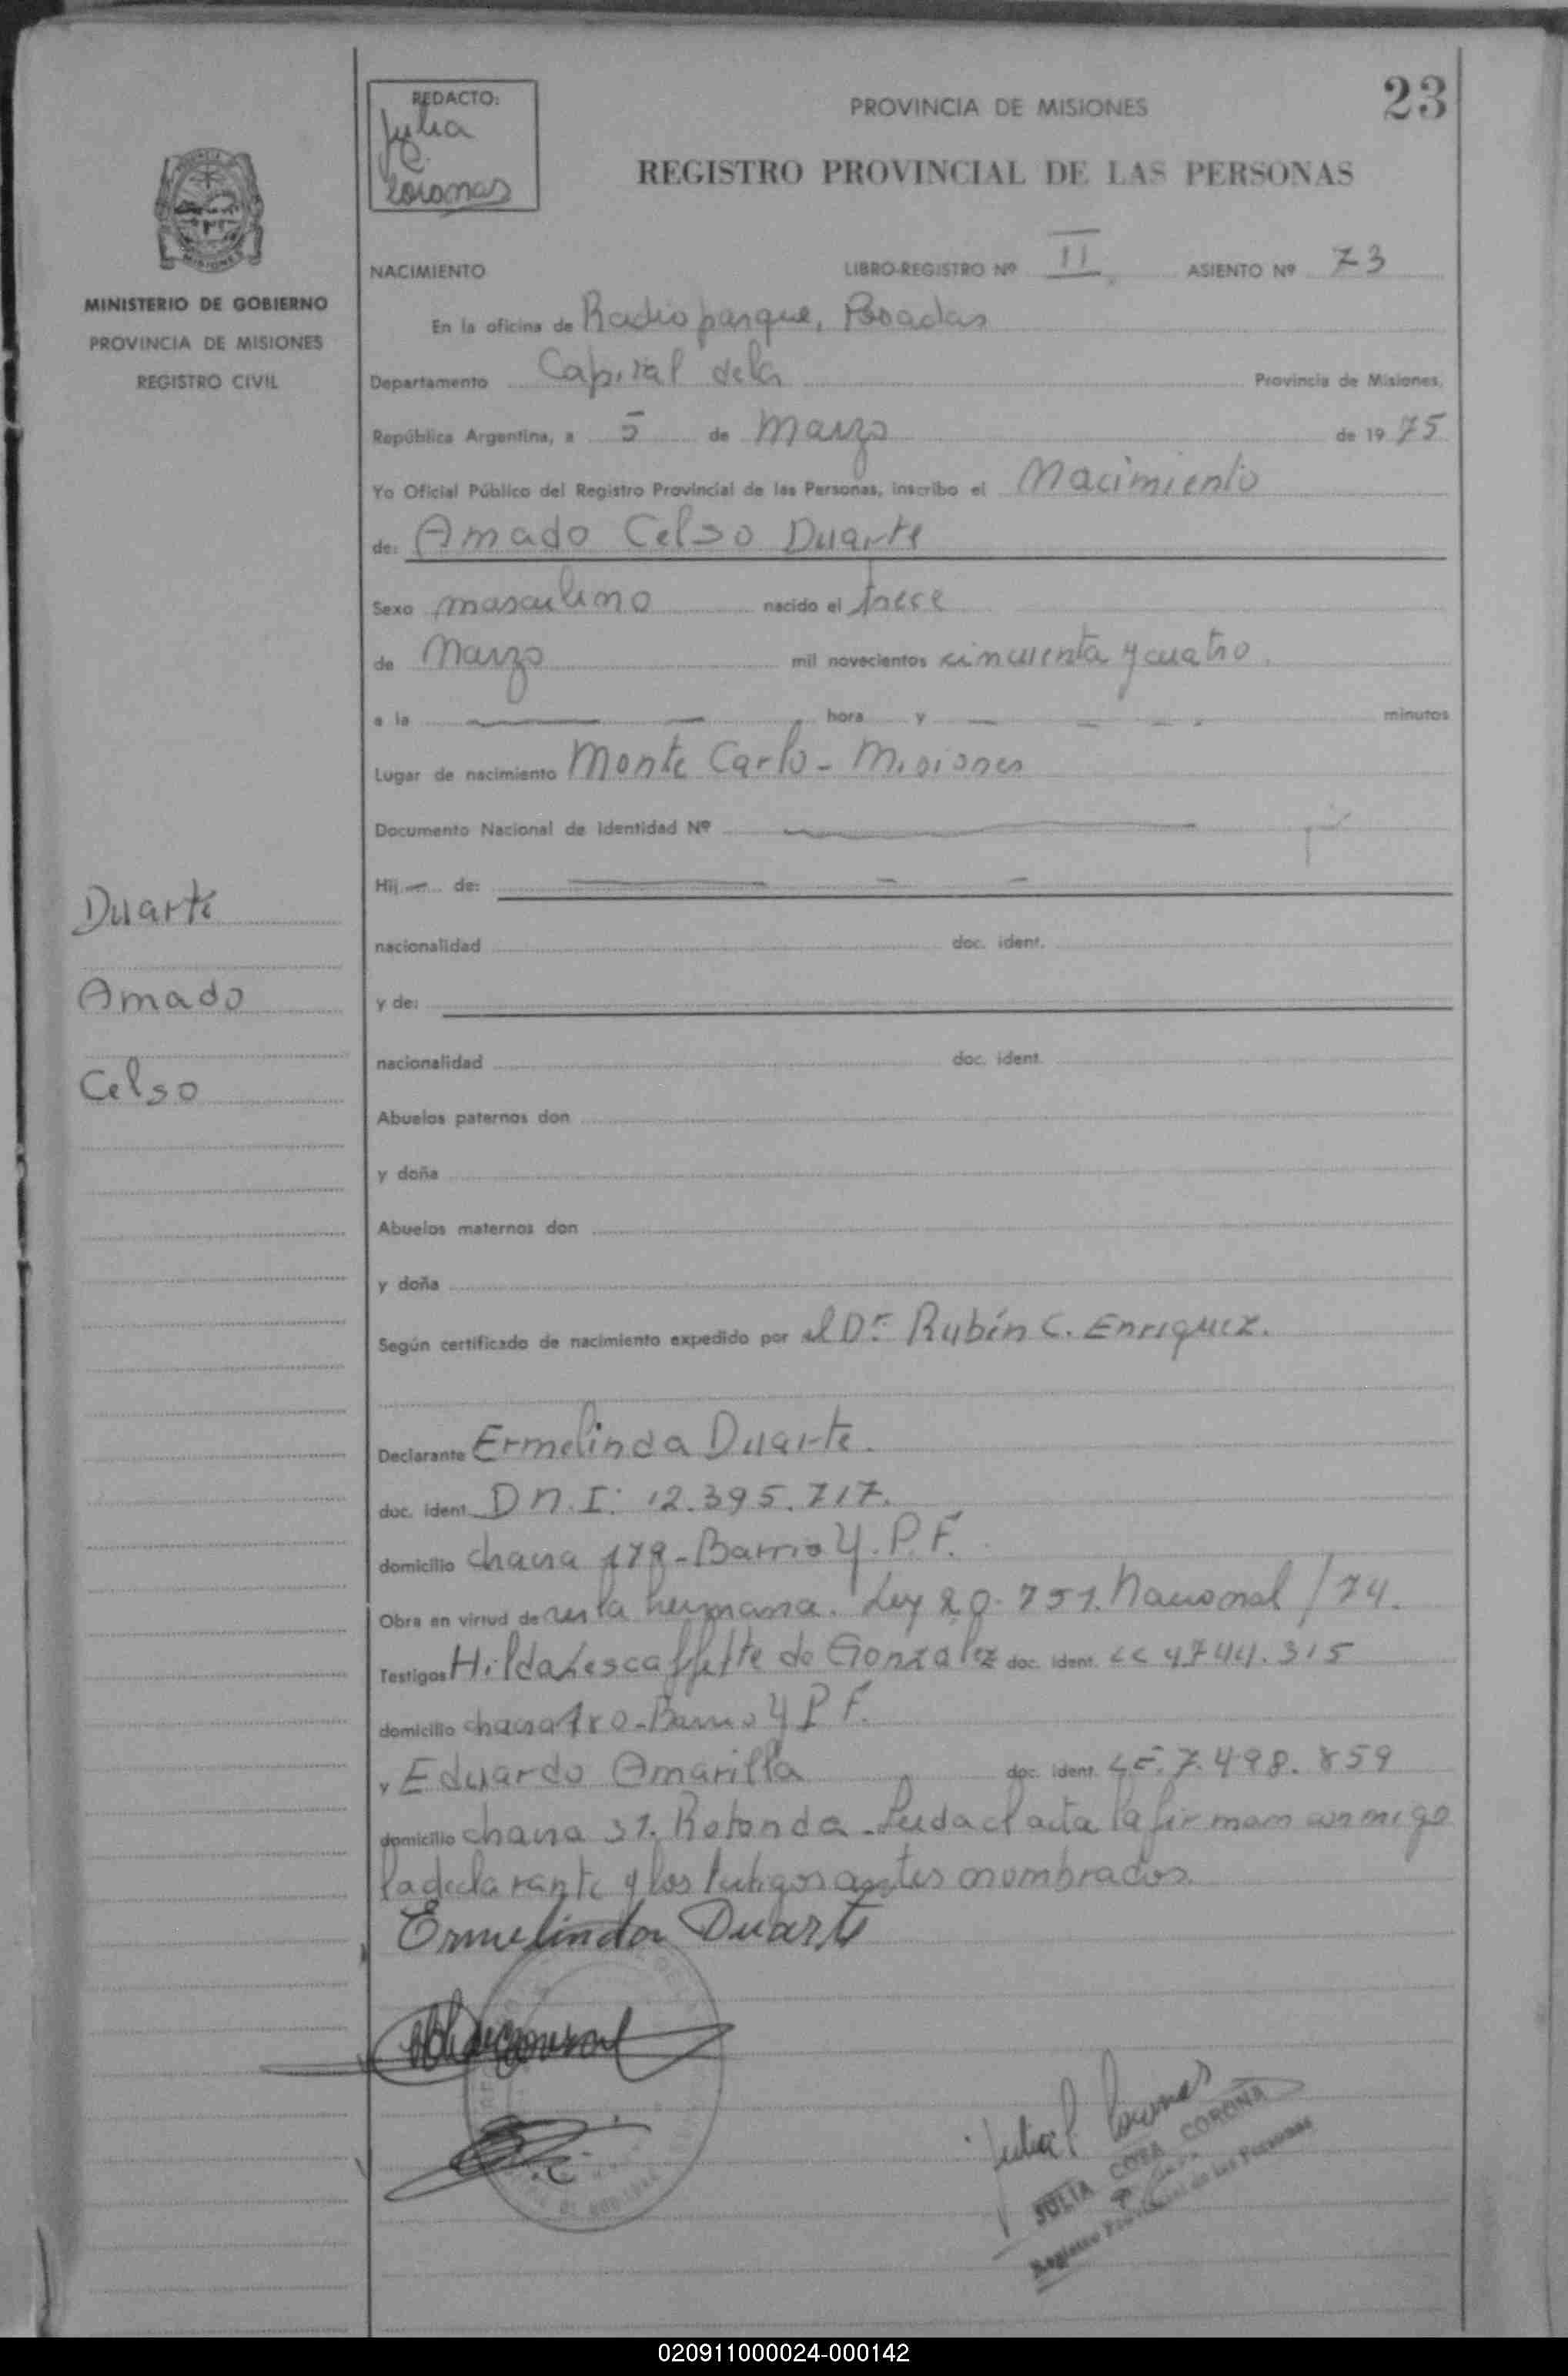 23
REDACTO:
Julia
C.
Coronas
PROVINCIA DE MISIONES
REGISTRO PROVINCIAL DE LAS PERSONAS
MISIONES
MINISTERIO DE GOBIERNO
PROVINCIA DE MISIONES
REGISTRO CIVIL
NACIMIENTO LIBRO-REGISTRO Nº II ASIENTO Nº 73
En la oficina de Radio parque, Posadas
Departamento Capital de la Provincia de Misiones,
República Argentina, a 5 de Marzo de 1975
Yo Oficial Público del Registro Provincial de las Personas, inscribo el Nacimiento
de: Amado Celso Duarte
Sexo masculino nacido el trece
de Marzo mil novecientos cincuenta y cuatro
a la hora y minutos
Lugar de nacimiento Monte Carlo - Misiones
Documento Nacional de Identidad Nº
Hij de:
Duarte
Amado
Celso
nacionalidad doc. ident.
y de:
nacionalidad doc. ident.
Abuelos paternos don
y doña
Abuelos maternos don
y doña
Según certificado de nacimiento expedido por el Dr. Rubén C. Enriquez.
Declarante Ermelinda Duarte.
doc. ident. D N. I: 12.395.717.
domicilio chacra 179 - Barrio Y. P. F.
Obra en virtud de ser la hermana. Ley 20.751. Nacional / 74.
Testigos Hilda Lescaffette de Gonzalez doc. ident. LC 4744.315
domicilio chacra 180 - Barrio Y P F.
y Eduardo Amarilla doc. ident. L E. 7.498.859
domicilio chacra 31. Rotonda - Leida el acta la firman conmigo
la declarante y los testigos antes nombrados.
Ermelinda Duarte
Julia C. Coronas
JULIA CORONA
Registro Provincial de las Personas
020911000024-000142